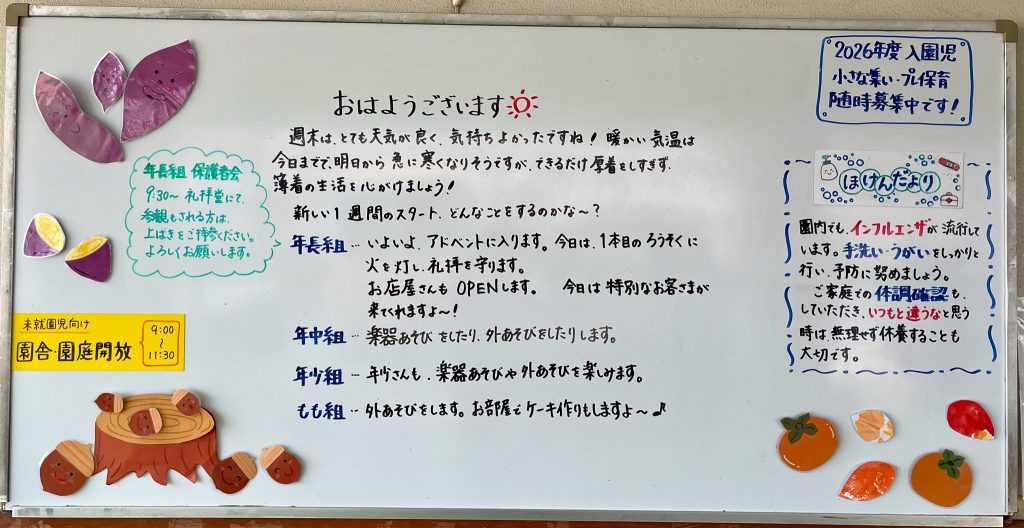 2026年度 入園児
小さな集い・プレ保育
随時募集中です!
おはようございます
週末は、とても天気が良く、気持ちよかったですね! 暖かい気温は
今日までで、明日から 急に寒くなりそうですが、できるだけ厚着をしすぎず、
薄着の生活を心がけましょう!
新しい1週間のスタート、どんなことをするのかな~?
年長組 … いよいよ、アドベントに入ります。今日は、1本目のろうそくに
火を灯し、礼拝を守ります。
お店屋さんも OPENします。 今日は特別なお客さまが
来てくれますよ~!
年中組 … 楽器あそびをしたり、外あそびをしたりします。
年少組 … 年少さんも、楽器あそびや外あそびを楽しみます。
もも組 … 外あそびをします。お部屋でケーキ作りもしますよ~♪
年長組 保護者会
9:30~ 礼拝堂にて、
参観もされる方は、
上ばきをご持参ください。
よろしくお願いします。
未就園児向け
園舎・園庭開放
9:00
~
11:30
ほけんだより
園内でも、インフルエンザが流行して
います。手洗い・うがいをしっかりと
行い、予防に努めましょう。
ご家庭での体調確認も、
していただき、いつもと違うなと思う
時は、無理せず休養することも
大切です。